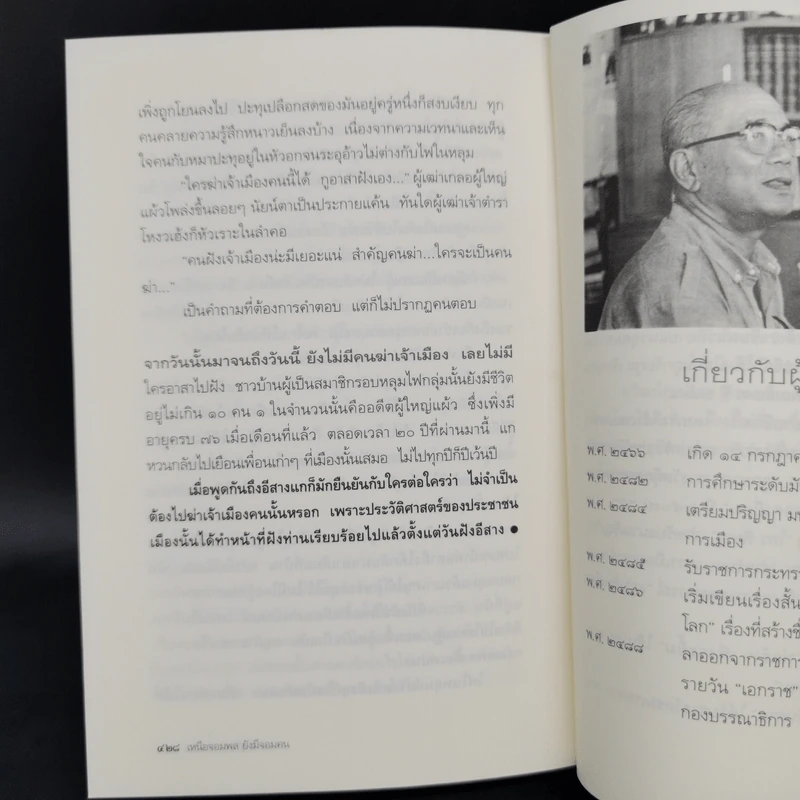 เพิ่งถูกโยนลงไป ปะทุเปลือกสดของมันอยู่ครู่หนึ่งก็สงบเงียบ ทุก
คนคลายความรู้สึกหนาวเย็นลงบ้าง เนื่องจากความเวทนาและเห็น
ใจคนกับหมาปะทุอยู่ในหัวอกจนระอุอ้าวไม่ต่างกับไฟในหลุม
“ใครฆ่าเจ้าเมืองคนนี้ได้ กูอาสาฝังเอง...” ผู้เฒ่าเกลอผู้ใหญ่
แผ้วโพล่งขึ้นลอยๆ นัยน์ตาเป็นประกายแค้น ทันใดผู้เฒ่าเจ้าตำรา
โหงวเฮ้งก็หัวเราะในลำคอ
“คนฝังเจ้าเมืองน่ะมีเยอะแน่ สำคัญคนฆ่า...ใครจะเป็นคน
ฆ่า...”
เป็นคำถามที่ต้องการคำตอบ แต่ก็ไม่ปรากฏคนตอบ
จากวันนั้นมาจนถึงวันนี้ ยังไม่มีคนฆ่าเจ้าเมือง เลยไม่มี
ใครอาสาไปฝัง ชาวบ้านผู้เป็นสมาชิกรอบหลุมไฟกลุ่มนั้นยังมีชีวิต
อยู่ไม่เกิน ๑๐ คน ๑ ในจำนวนนั้นคืออดีตผู้ใหญ่แผ้ว ซึ่งเพิ่งมี
อายุครบ ๗๖ เมื่อเดือนที่แล้ว ตลอดเวลา ๒๐ ปีที่ผ่านมานี้ แก
หวนกลับไปเยือนเพื่อนเก่าๆ ที่เมืองนั้นเสมอ ไม่ไปทุกปีก็ปีเว้นปี
เมื่อพูดกันถึงอีสางแกก็มักยืนยันกับใครต่อใครว่า ไม่จำเป็น
ต้องไปฆ่าเจ้าเมืองคนนั้นหรอก เพราะประวัติศาสตร์ของประชาชน
เมืองนั้นได้ทำหน้าที่ฝังท่านเรียบร้อยไปแล้วตั้งแต่วันฝังอีสาง ●
๔๒๘ เหนือจอมพล ยังมีจอมคน
เกี่ยวกับผู้
พ.ศ. ๒๔๖๖ เกิด ๑๔ กรกฎาค
พ.ศ. ๒๔๘๒ การศึกษาระดับมั
พ.ศ. ๒๔๘๔ เตรียมปริญญา มห
การเมือง
พ.ศ. ๒๔๘๕ รับราชการกระทรว
พ.ศ. ๒๔๘๖ เริ่มเขียนเรื่องสั้น
โลก” เรื่องที่สร้างชื่
พ.ศ. ๒๔๘๘ ลาออกจากราชการ
รายวัน “เอกราช”
กองบรรณาธิการ